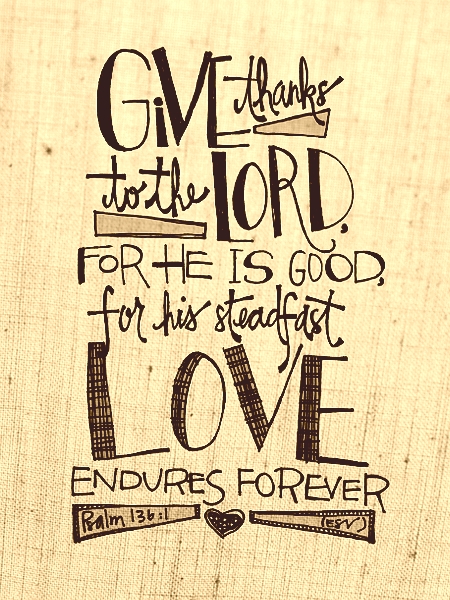 GiVE thanks
to the LORD,
FOR HE IS GOOD,
for his steadfast
LOVE
ENDURES FOREVER
Psalm 136:1 (ESV)